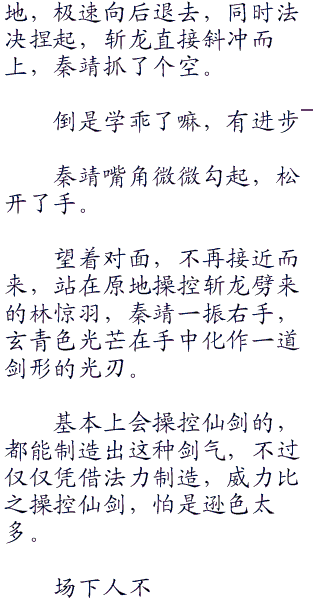 地，极速向后退去，同时法
决捏起，斩龙直接斜冲而
上，秦靖抓了个空。
倒是学乖了嘛，有进步
秦靖嘴角微微勾起，松
开了手。
望着对面，不再接近而
来，站在原地操控斩龙劈来
的林惊羽，秦靖一振右手，
玄青色光芒在手中化作一道
剑形的光刃。
基本上会操控仙剑的，
都能制造出这种剑气，不过
仅仅凭借法力制造，威力比
之操控仙剑，怕是逊色太
多。
场下人不